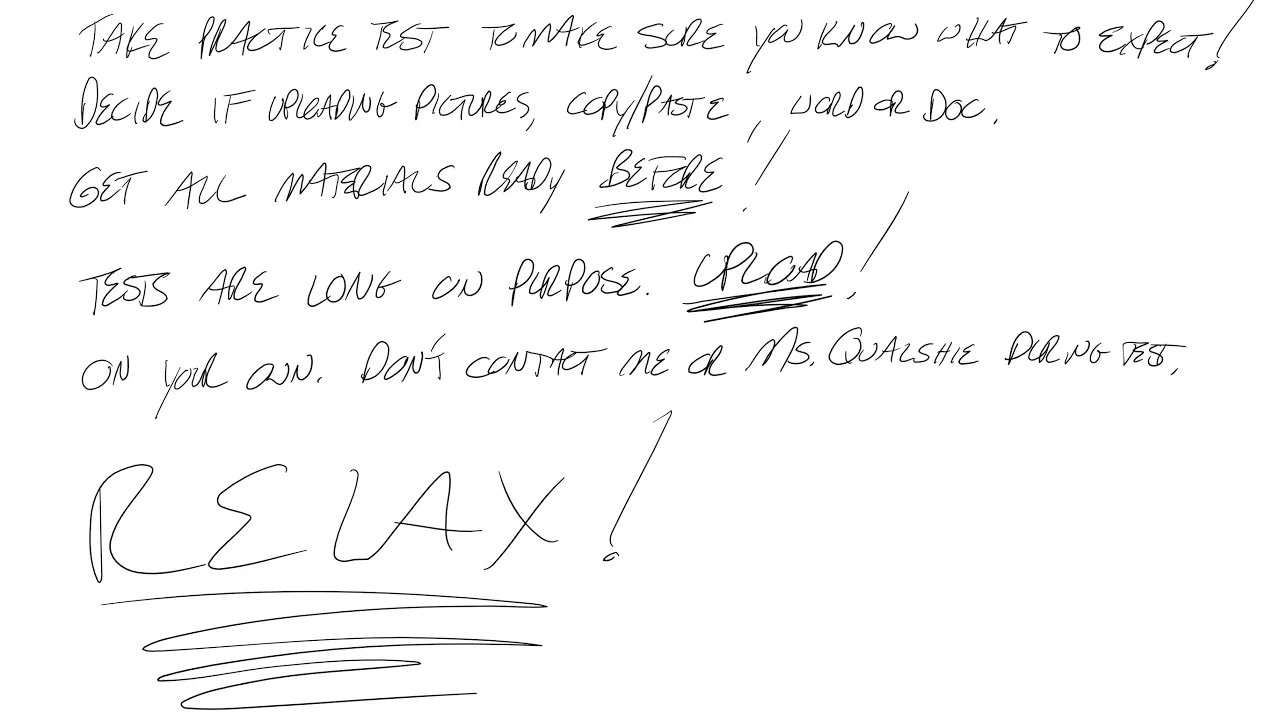 TAKE PRACTICE TEST TO MAKE SURE YOU KNOW WHAT TO EXPECT!
DECIDE IF UPLOADING PICTURES, COPY/PASTE, WORD OR DOC.
GET ALL MATERIALS READY BEFORE!
TESTS ARE LONG ON PURPOSE. UPLOAD!
ON YOUR OWN. DON'T CONTACT ME OR MS. QUALSHIE DURING TEST.
RELAX!